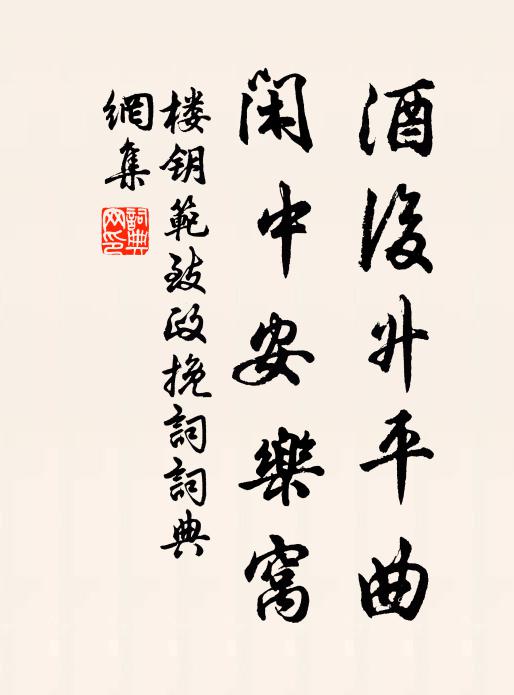 酒後升平曲
閑中安樂窩
楼钥範致政挽詞詞典
網集
詞典
网印